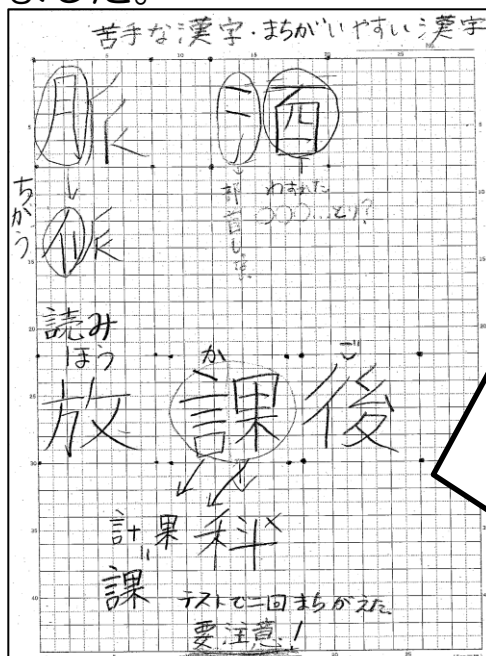 ました。
苦手な漢字・まちがいやすい漢字
脈
ちがう
わすれた
読み
ほう か ご
放 課 後
計 果 科×
課
テストで二回まちがえた
要注意!